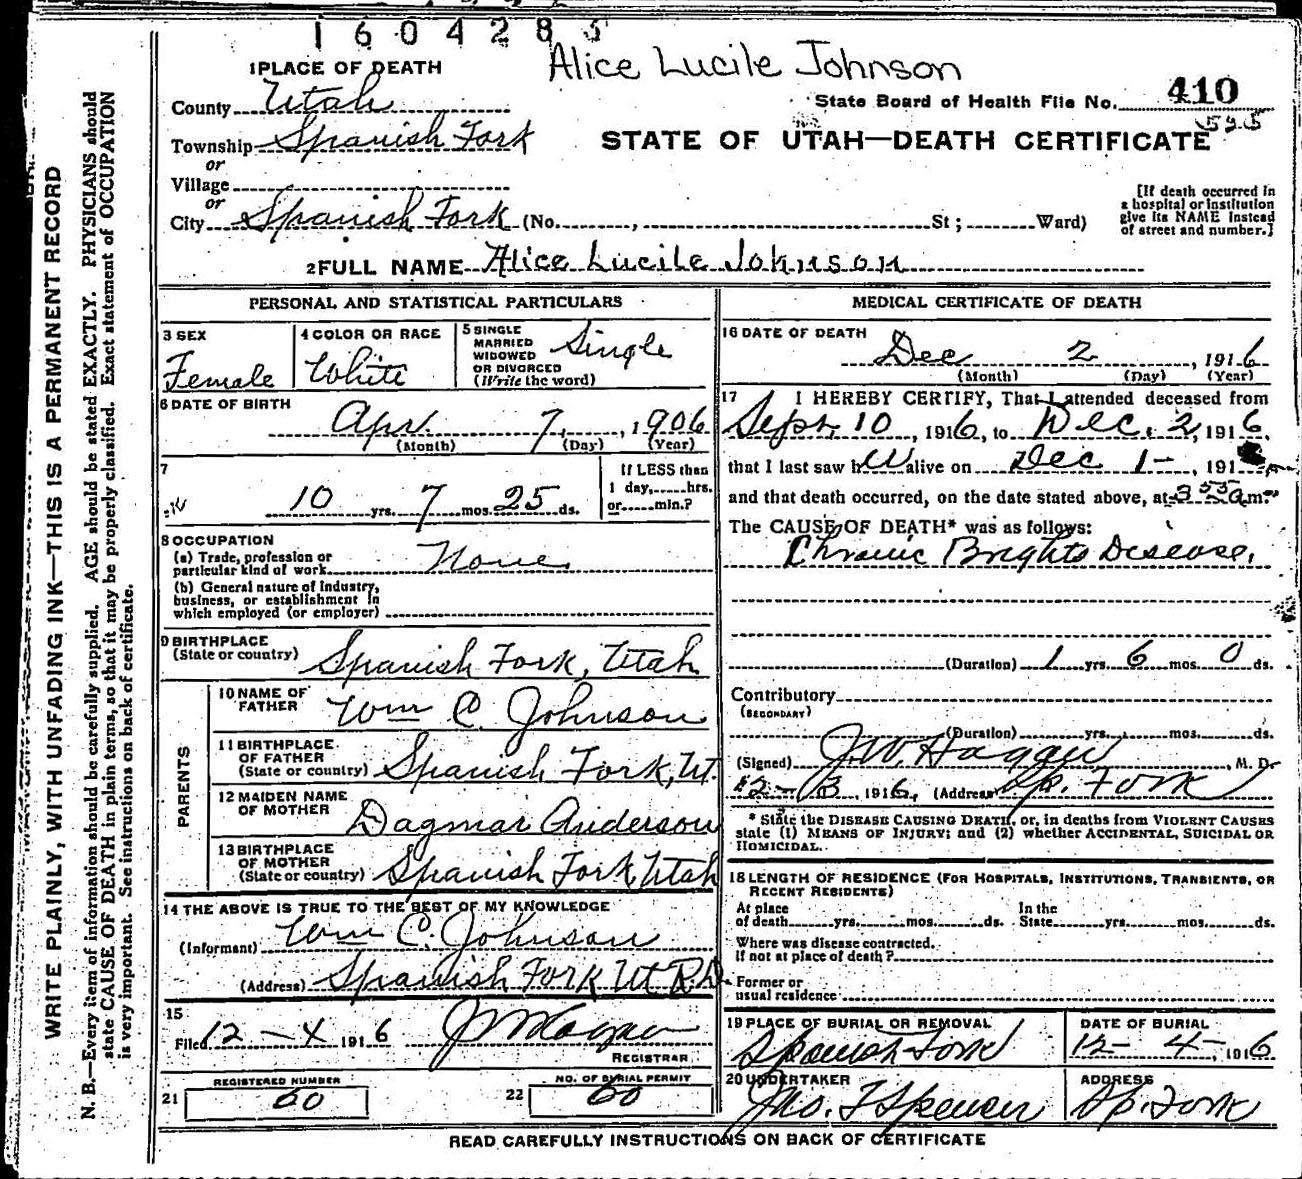 1604285
Alice Lucile Johnson
1 PLACE OF DEATH
County Utah
State Board of Health File No. 410
Township Spanish Fork
or
STATE OF UTAH—DEATH CERTIFICATE
Village
or
City Spanish Fork (No. , St ; Ward)
[If death occurred in
a hospital or institution
give its NAME instead
of street and number.]
2 FULL NAME Alice Lucile Johnson
PERSONAL AND STATISTICAL PARTICULARS
3 SEX
Female
4 COLOR OR RACE
White
5 SINGLE
MARRIED
WIDOWED
OR DIVORCED
(Write the word)
Single
6 DATE OF BIRTH
Apr. 7, , 1906
(Month) (Day) (Year)
7
10 yrs. 7 mos. 25 ds.
If LESS than
1 day, hrs.
or min.?
8 OCCUPATION
(a) Trade, profession or
particular kind of work None
(b) General nature of Industry,
business, or establishment in
which employed (or employer)
9 BIRTHPLACE
(State or country) Spanish Fork, Utah
PARENTS
10 NAME OF
FATHER Wm C. Johnson
11 BIRTHPLACE
OF FATHER
(State or country) Spanish Fork, Ut.
12 MAIDEN NAME
OF MOTHER Dagmar Anderson
13 BIRTHPLACE
OF MOTHER
(State or country) Spanish Fork Utah
14 THE ABOVE IS TRUE TO THE BEST OF MY KNOWLEDGE
(Informant) Wm C. Johnson
(Address) Spanish Fork Ut R.D.
15
Filed 12 - 4 1916
REGISTRAR
REGISTERED NUMBER
21 60
NO. OF BURIAL PERMIT
22 60
MEDICAL CERTIFICATE OF DEATH
16 DATE OF DEATH
Dec 2 , 1916
(Month) (Day) (Year)
17 I HEREBY CERTIFY, That I attended deceased from
Sept. 10 , 1916, to Dec. 2, 1916,
that I last saw her alive on Dec 1 - , 191
and that death occurred, on the date stated above, at 3 55 a m.
The CAUSE OF DEATH* was as follows:
Chronic Brights Disease.
(Duration) 1 yrs. 6 mos. 0 ds.
Contributory
(SECONDARY)
(Duration) yrs. mos. ds.
(Signed) J.W. Hagan , M. D.
12 - 3 , 1916, (Address) Sp. Fork
* State the DISEASE CAUSING DEATH, or, in deaths from VIOLENT CAUSES
state (1) MEANS OF INJURY; and (2) whether ACCIDENTAL, SUICIDAL OR
HOMICIDAL.
18 LENGTH OF RESIDENCE (FOR HOSPITALS, INSTITUTIONS, TRANSIENTS, OR
RECENT RESIDENTS)
At place
of death yrs. mos. ds.
In the
State yrs. mos. ds.
Where was disease contracted.
If not at place of death?
Former or
usual residence
19 PLACE OF BURIAL OR REMOVAL
Spanish Fork
DATE OF BURIAL
12 - 4 - , 1916
20 UNDERTAKER
Jno. F Spencer
ADDRESS
Sp. Fork
READ CAREFULLY INSTRUCTIONS ON BACK OF CERTIFICATE
WRITE PLAINLY, WITH UNFADING INK—THIS IS A PERMANENT RECORD
N. B.—Every item of information should be carefully supplied. AGE should be stated EXACTLY. PHYSICIANS should
state CAUSE OF DEATH in plain terms, so that it may be properly classified. Exact statement of OCCUPATION
is very important. See instructions on back of certificate.